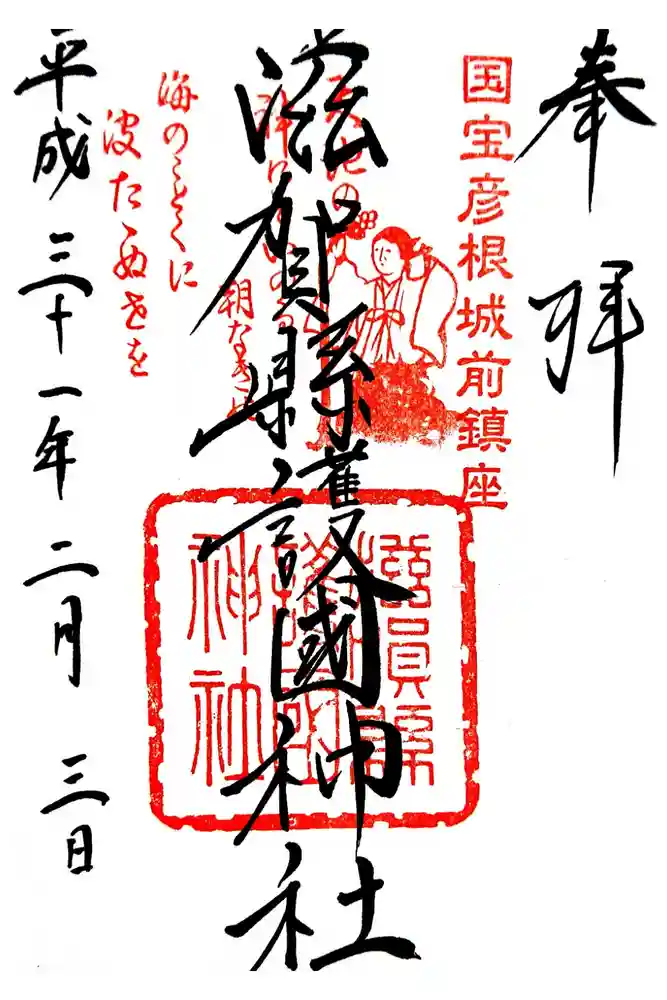 奉拝
国宝彦根城前鎮座
滋賀縣護國神社
滋賀縣
護國
神社
朝なきに
海のことくに
波たゝぬ世を
平成三十一年二月三日